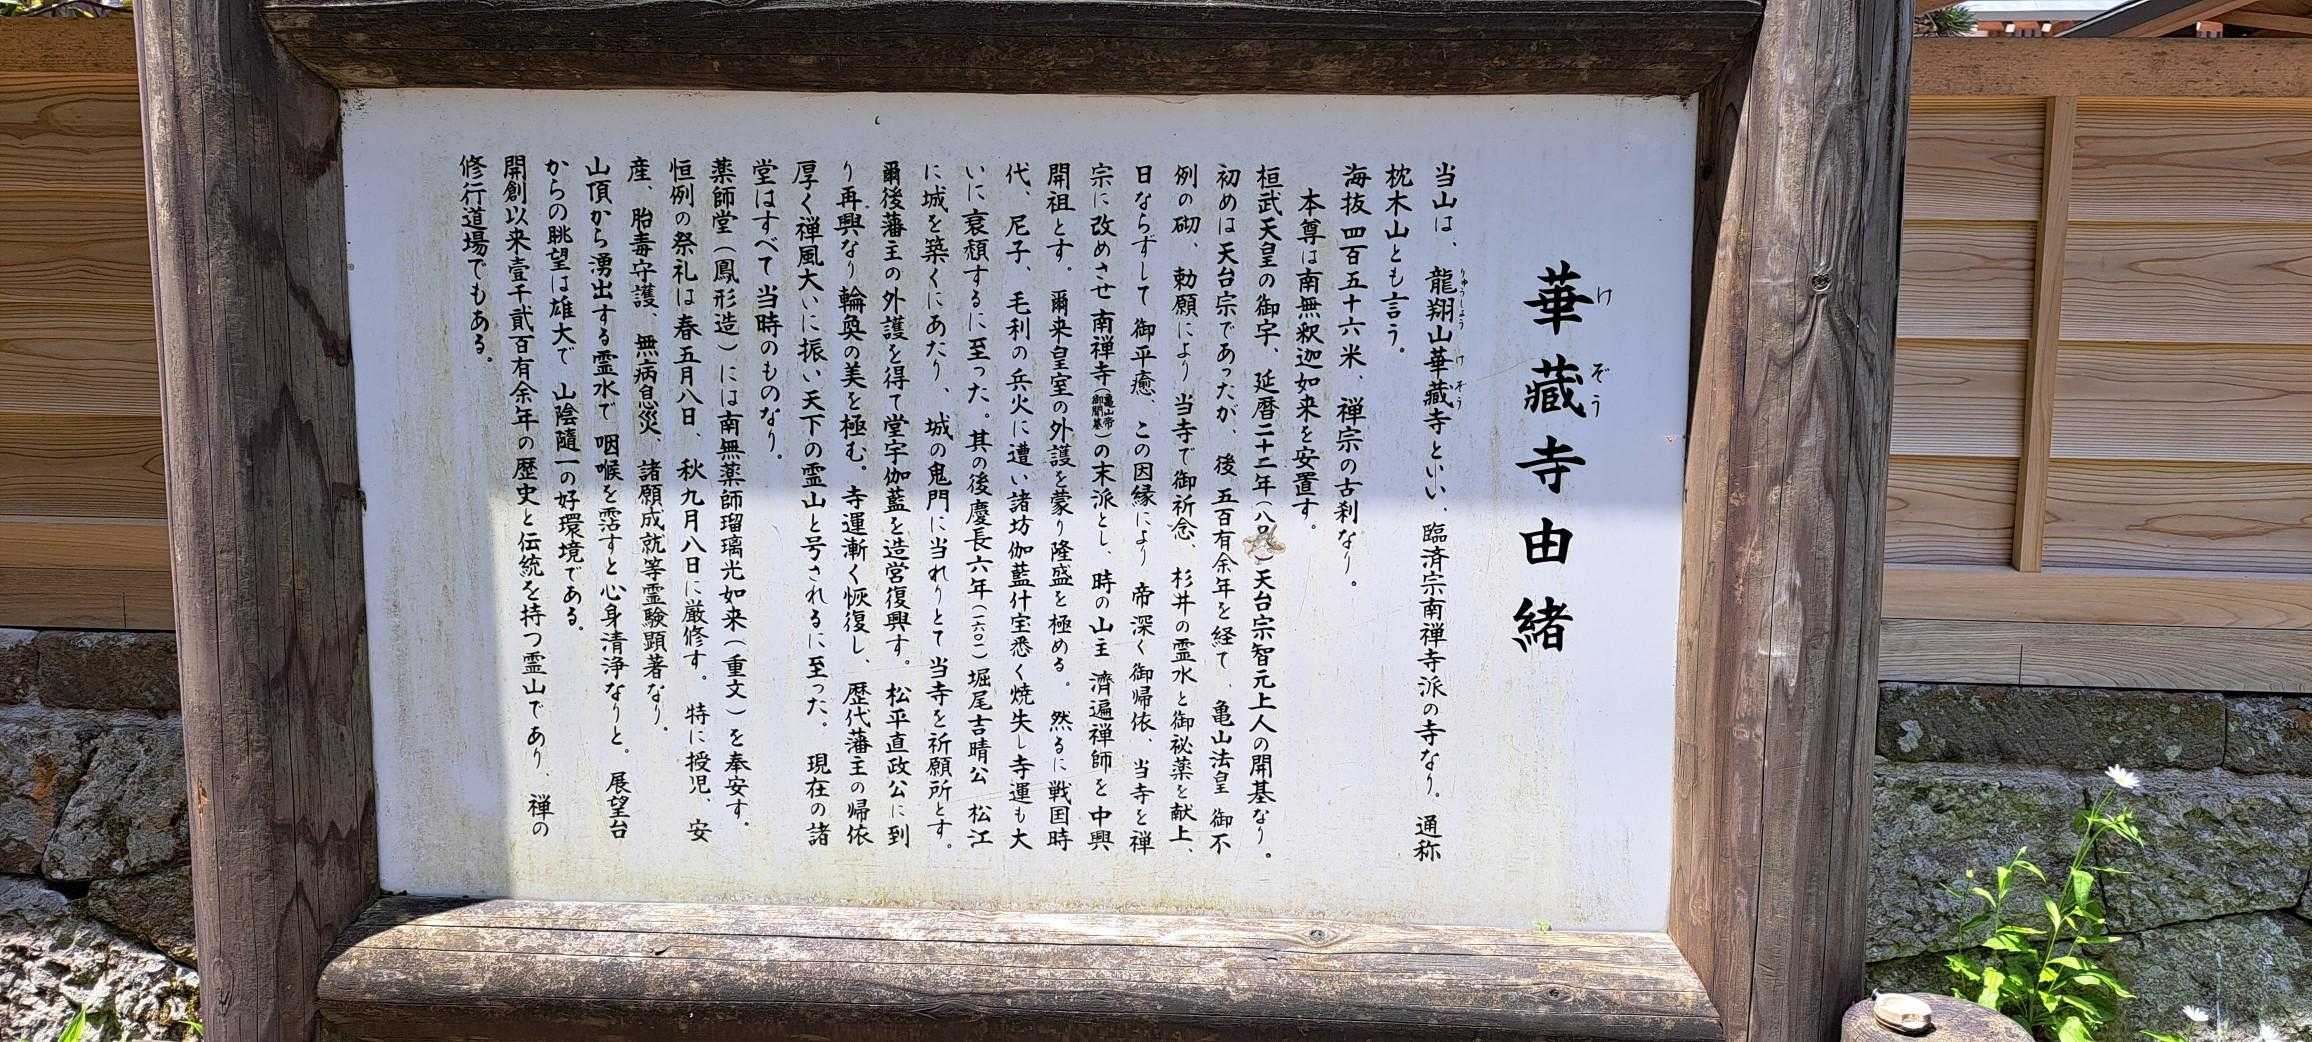 華藏寺由緒
けぞう
当山は、龍翔山華藏寺といい、臨済宗南禅寺派の寺なり。通称
りゅうしょう けぞう
枕木山とも言う。
海抜四百五十六米、禅宗の古刹なり。
本尊は南無釈迦如来を安置す。
桓武天皇の御宇、延暦二十二年(八〇)天台宗智元上人の開基なり。
初めは天台宗であったが、後五百有余年を経て、亀山法皇御不
例の砌、勅願により当寺で御祈念、杉井の霊水と御祕薬を献上、
日ならずして御平癒、この因縁により帝深く御帰依、当寺を禅
宗に改めさせ南禅寺(亀山帝御開基)の末派とし、時の山主濟遍禅師を中興
開祖とす。爾来皇室の外護を蒙り隆盛を極める。然るに戦国時
代、尼子、毛利の兵火に遭い諸坊伽藍什宝悉く焼失し寺運も大
いに衰頽するに至った。其の後慶長六年(一六〇一)堀尾吉晴公松江
に城を築くにあたり、城の鬼門に当れりとて当寺を祈願所とす。
爾後藩主の外護を得て堂宇伽藍を造営復興す。松平直政公に到
り再興なり輪奐の美を極む。寺運漸く恢復し、歴代藩主の帰依
厚く禅風大いに振い天下の霊山と号されるに至った。現在の諸
堂はすべて当時のものなり。
薬師堂(鳳形造)には南無薬師瑠璃光如来(重文)を奉安す。
恒例の祭礼は春五月八日、秋九月八日に厳修す。特に授児、安
産、胎毒守護、無病息災、諸願成就等霊験顕著なり。
山頂から湧出する霊水で咽喉を霑すと心身清浄なりと。展望台
からの眺望は雄大で山陰随一の好環境である。
開創以来壹千貳百有余年の歴史と伝統を持つ霊山であり、禅の
修行道場でもある。